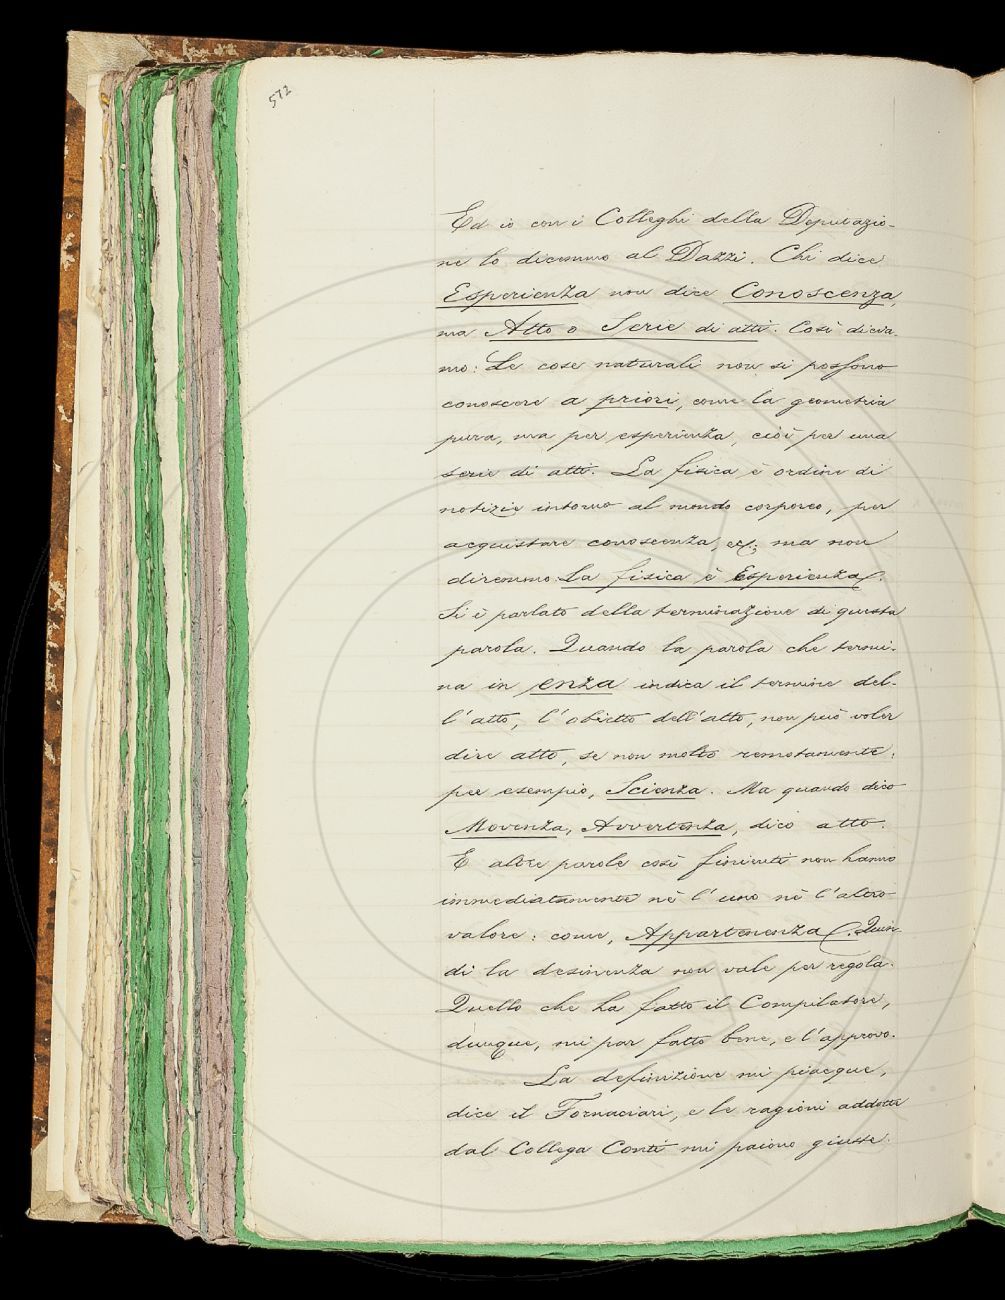 572
Ed io con i Colleghi della Deputazio-
ne lo dicemmo al Dazzi. Chi dice
Esperienza non dice Conoscenza,
ma Atto o Serie di atti. Così dicia-
mo: Le cose naturali non si possono
conoscere a priori, come la geometria
pura, ma per esperienza, cioè per una
serie di atti. La fisica è ordine di
notizie intorno al mondo corporeo, per
acquistare conoscenza, ec; ma non
diremmo: La fisica è Esperienza.
Si è parlato della terminazione di questa
parola. Quando la parola che termi-
na in enza indica il termine del-
l'atto, l'obietto dell'atto, non può voler
dire atto, se non molto remotamente;
per esempio, Scienza. Ma quando dico
Movenza, Avvertenza, dico atto.
E altre parole così finienti non hanno
immediatamente nè l'uno nè l'altro
valore: come, Appartenenza. Quin-
di la desinenza non vale per regola.
Quello che ha fatto il Compilatore,
dunque, mi par fatto bene, e l'approvo.
La definizione mi piacque,
dice il Fornaciari, e le ragioni addotte
dal Collega Conti mi paiono giuste.